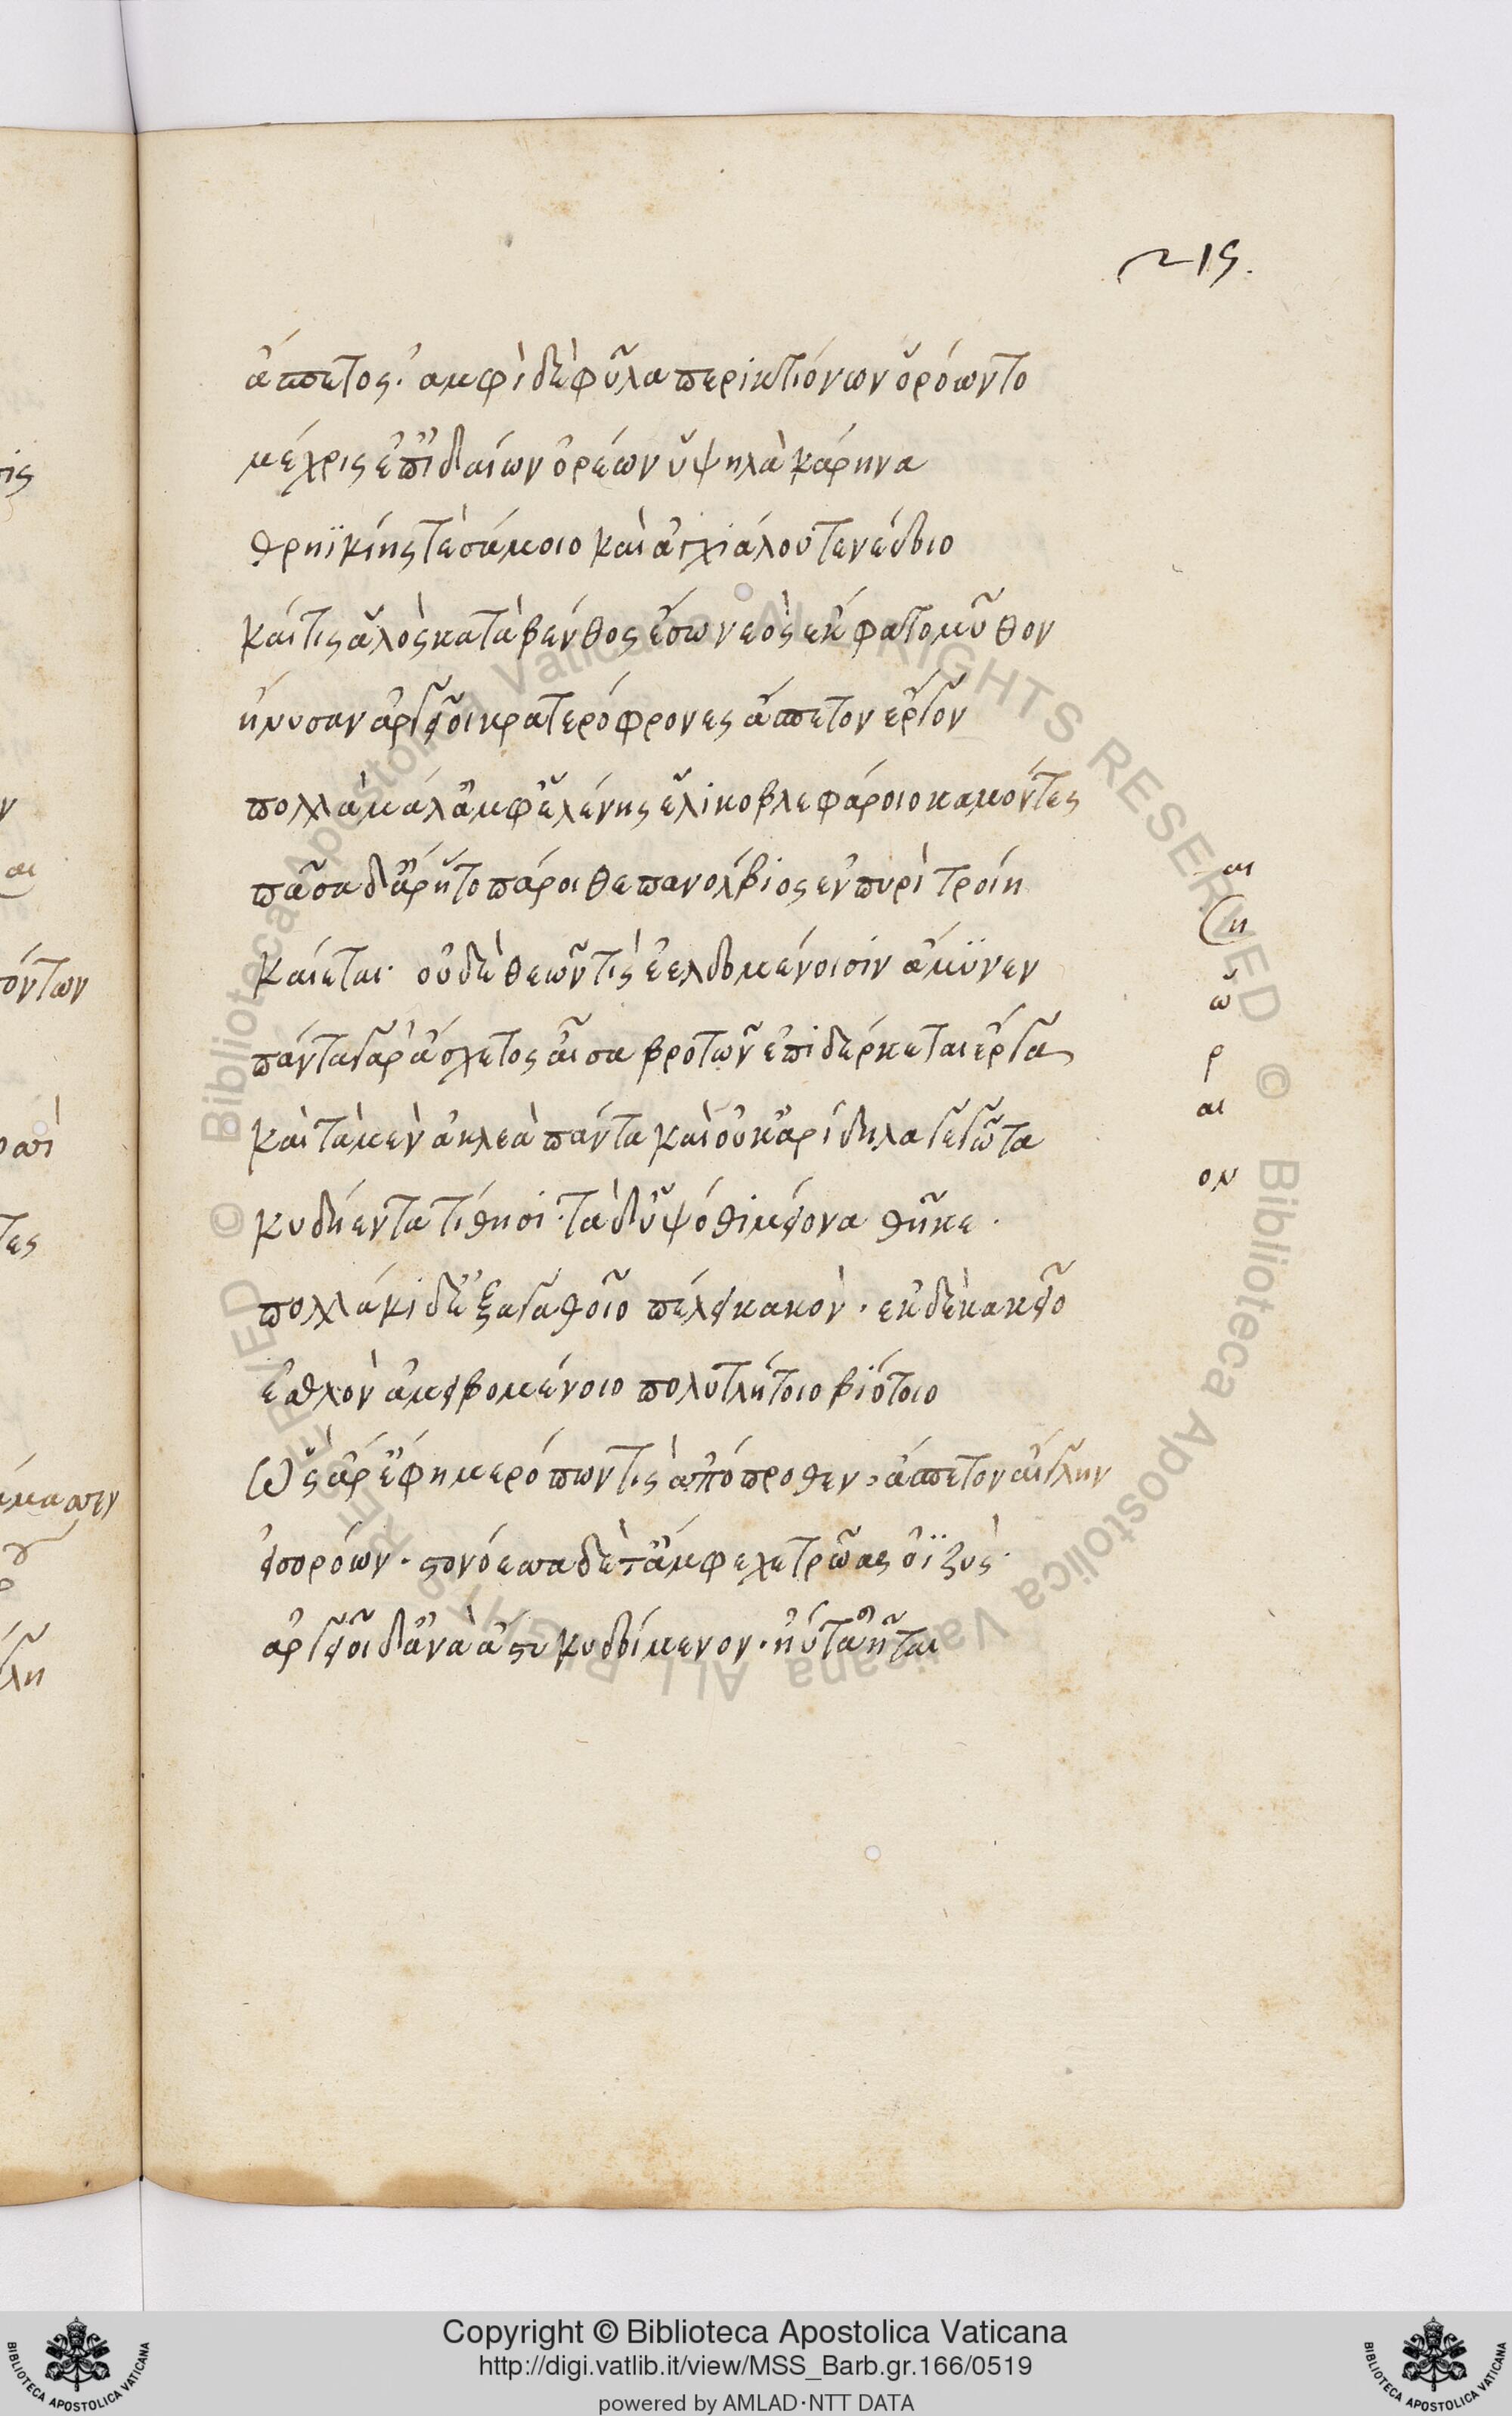 215.
ἄσπετος· ἀμφὶ δὲ φῦλα περικτιόνων ὁρόωντο
μέχρις ἐπ' ἰδαίων ὀρέων ὑψηλὰ κάρηνα
θρηϊκίης τὲ σάμοιο καὶ ἀγχιάλου τενέδοιο
καί τις ἁλὸς κατὰ βένθος ἔσω νεὸς ἔκφατο μῦθον
ἤνυσαν ἀργεῖοι κρατερόφρονες ἄσπετον ἔργον
πολλὰ μάλ' ἀμφ' ἑλένης ἑλικοβλεφάροιο καμόντες
πᾶσα δ' ἄρ' ἡ τοπάροιθε πανόλβιος ἐν πυρὶ τροίη
καίεται· οὐδὲ θεῶν τὶς ἐελδομένοισιν ἄμϋνεν
πάντα γὰρ ἄσχετος αἶσα βροτῶν ἐπιδέρκεται ἔργα
καὶ τὰ μὲν ἀκλεὰ πάντα καὶ οὐκ ἀρίδηλα γεγῶτα
κυδήεντα τίθησι· τὰ δ' ὑψόθι μείονα θῆκε·
πολλάκι δ' ἐξ ἀγαθοῖο πέλει κακὸν· ἐκ δὲ κακεῖο
ἐσθλὸν ἀμειβομένοιο πολυτλήτοιο βιότοιο
Ὣς ἄρ' ἔφη μερόπων τὶς ἀπόπροθεν, ἄσπετον αἴγλην
εἰσορόων· στονόεσσα δὲ τ' ἄμφεχε τρῶας ὀϊζὺς·
ἀργεῖοι δ' ἀνὰ ἄστυ κυδοίμενον· ἠΰτ' ἀῆται
αι
η
ω
ρ
αι
ον
Copyright © Biblioteca Apostolica Vaticana
http://digi.vatlib.it/view/MSS_Barb.gr.166/0519
powered by AMLAD·NTT DATA